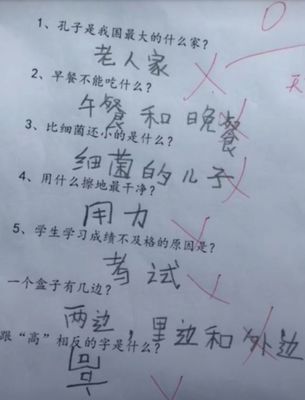 1、孔子是我国最大的什么家?
老人家
2、早餐不能吃什么?
午餐和晚餐
3、比细菌还小的是什么?
细菌的儿子
4、用什么擦地最干净?
用力
5、学生学习成绩不及格的原因是?
考试
一个盒子有几边?
两边,里边和外边
跟“高”相反的字是什么?